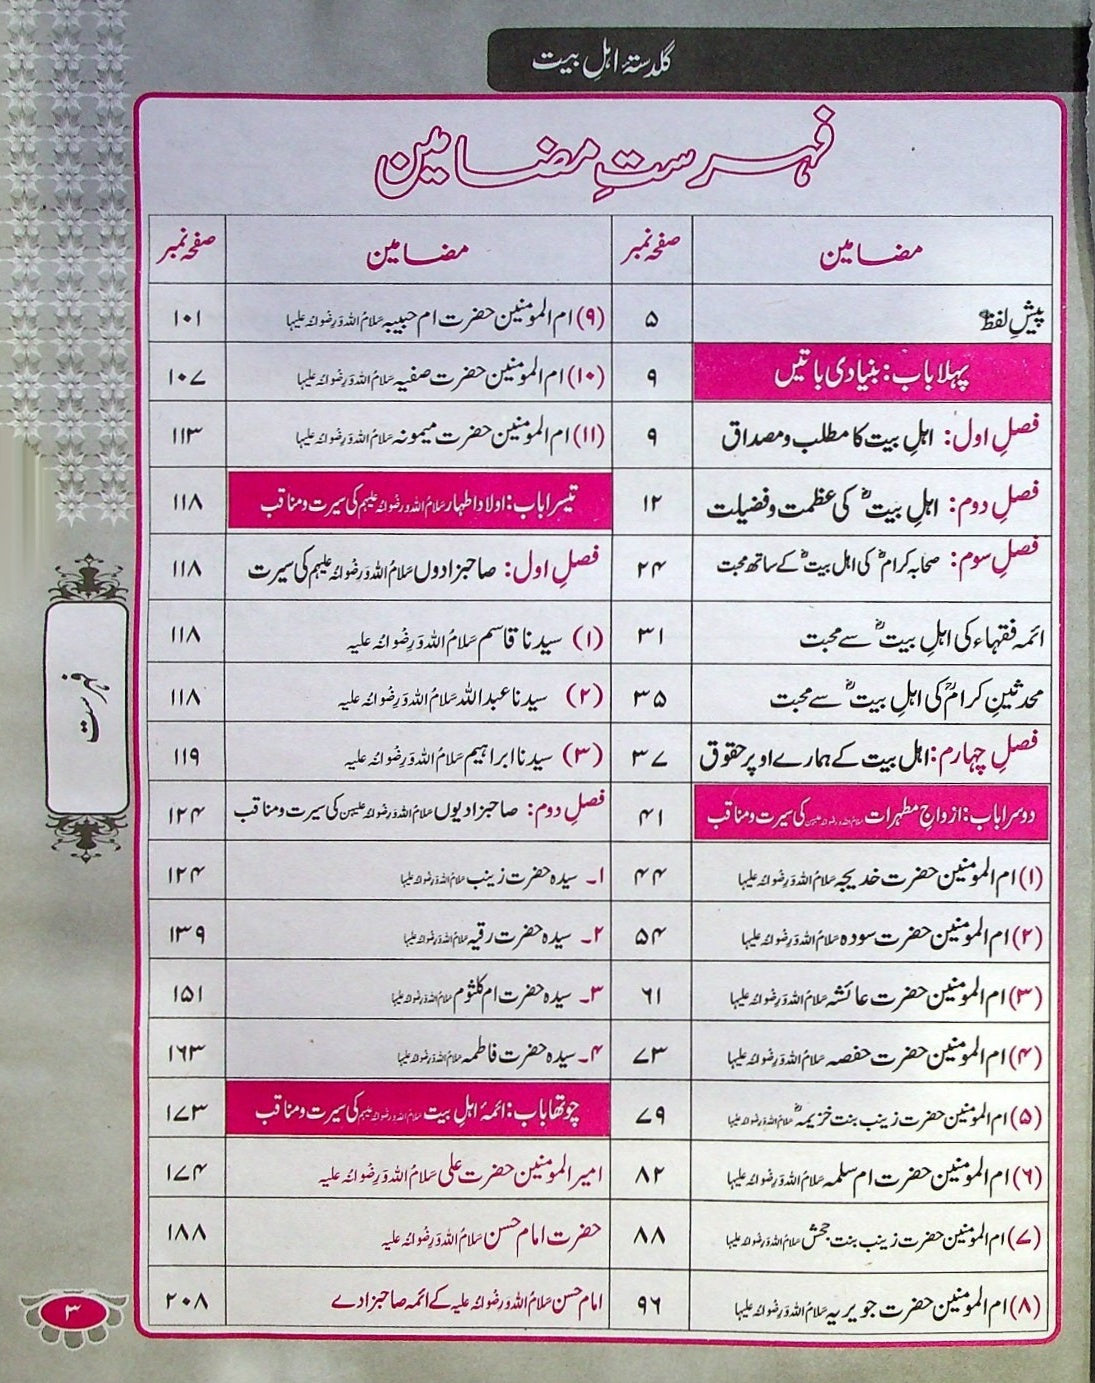 گلدستۂ اہلِ بیت
فہرستِ مضامین
مضامین صفحہ نمبر مضامین صفحہ نمبر
پیشِ لفظ ۵
پہلا باب: بنیادی باتیں ۹
فصلِ اول: اہلِ بیت کا مطلب و مصداق ۹
فصلِ دوم: اہلِ بیتؓ کی عظمت و فضیلت ۱۲
فصلِ سوم: صحابہ کرامؓ کی اہل بیتؓ کے ساتھ محبت ۲۴
ائمہ فقہاء کی اہلِ بیتؓ سے محبت ۳۱
محدثینِ کرامؒ کی اہلِ بیتؓ سے محبت ۳۵
فصلِ چہارم: اہل بیت کے ہمارے اوپر حقوق ۳۷
دوسرا باب: ازواجِ مطہرات سَلَامُ اللہ وَرِضْوَانُہ عَلَیہِن کی سیرت و مناقب ۴۱
(۱) ام المومنین حضرت خدیجہ سَلَامُ اللہ وَرِضْوَانُہ عَلَیہا ۴۴
(۲) ام المومنین حضرت سودہ سَلَامُ اللہ وَرِضْوَانُہ عَلَیہا ۵۴
(۳) ام المومنین حضرت عائشہ سَلَامُ اللہ وَرِضْوَانُہ عَلَیہا ۶۱
(۴) ام المومنین حضرت حفصہ سَلَامُ اللہ وَرِضْوَانُہ عَلَیہا ۷۳
(۵) ام المومنین حضرت زینب بنت خزیمہؓ سَلَامُ اللہ وَرِضْوَانُہ عَلَیہا ۷۹
(۶) ام المومنین حضرت ام سلمہ سَلَامُ اللہ وَرِضْوَانُہ عَلَیہا ۸۲
(۷) ام المومنین حضرت زینب بنت جحش سَلَامُ اللہ وَرِضْوَانُہ عَلَیہا ۸۸
(۸) ام المومنین حضرت جویریہ سَلَامُ اللہ وَرِضْوَانُہ عَلَیہا ۹۶
(۹) ام المومنین حضرت ام حبیبہ سَلَامُ اللہ وَرِضْوَانُہ عَلَیہا ۱۰۱
(۱۰) ام المومنین حضرت صفیہ سَلَامُ اللہ وَرِضْوَانُہ عَلَیہا ۱۰۷
(۱۱) ام المومنین حضرت میمونہ سَلَامُ اللہ وَرِضْوَانُہ عَلَیہا ۱۱۳
تیسرا باب: اولاد اطہار سَلَامُ اللہ وَرِضْوَانُہ عَلَیہِم کی سیرت و مناقب ۱۱۸
فصلِ اول: صاحبزادوں سَلَامُ اللہ وَرِضْوَانُہ عَلَیہِم کی سیرت ۱۱۸
(۱) سیدنا قاسم سَلَامُ اللہ وَرِضْوَانُہ عَلَیہ ۱۱۸
(۲) سیدنا عبداللہ سَلَامُ اللہ وَرِضْوَانُہ عَلَیہ ۱۱۸
(۳) سیدنا ابراہیم سَلَامُ اللہ وَرِضْوَانُہ عَلَیہ ۱۱۹
فصلِ دوم: صاحبزادیوں سَلَامُ اللہ وَرِضْوَانُہ عَلَیہِن کی سیرت و مناقب ۱۲۴
۱۔ سیدہ حضرت زینب سَلَامُ اللہ وَرِضْوَانُہ عَلَیہا ۱۲۴
۲۔ سیدہ حضرت رقیہ سَلَامُ اللہ وَرِضْوَانُہ عَلَیہا ۱۳۹
۳۔ سیدہ حضرت ام کلثوم سَلَامُ اللہ وَرِضْوَانُہ عَلَیہا ۱۵۱
۴۔ سیدہ حضرت فاطمہ سَلَامُ اللہ وَرِضْوَانُہ عَلَیہا ۱۶۳
چوتھا باب: ائمۂ اہلِ بیت سَلَامُ اللہ وَرِضْوَانُہ عَلَیہِم کی سیرت و مناقب ۱۷۳
امیر المومنین حضرت علی سَلَامُ اللہ وَرِضْوَانُہ عَلَیہ ۱۷۴
حضرت امام حسن سَلَامُ اللہ وَرِضْوَانُہ عَلَیہ ۱۸۸
امام حسن سَلَامُ اللہ وَرِضْوَانُہ عَلَیہ کے ائمہ صاحبزادے ۲۰۸
فہرست
۳